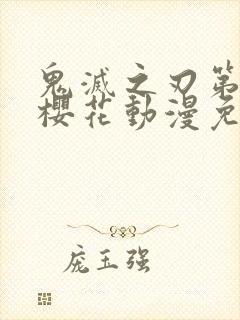 鬼滅之刃第
櫻花動漫免
庞玉强